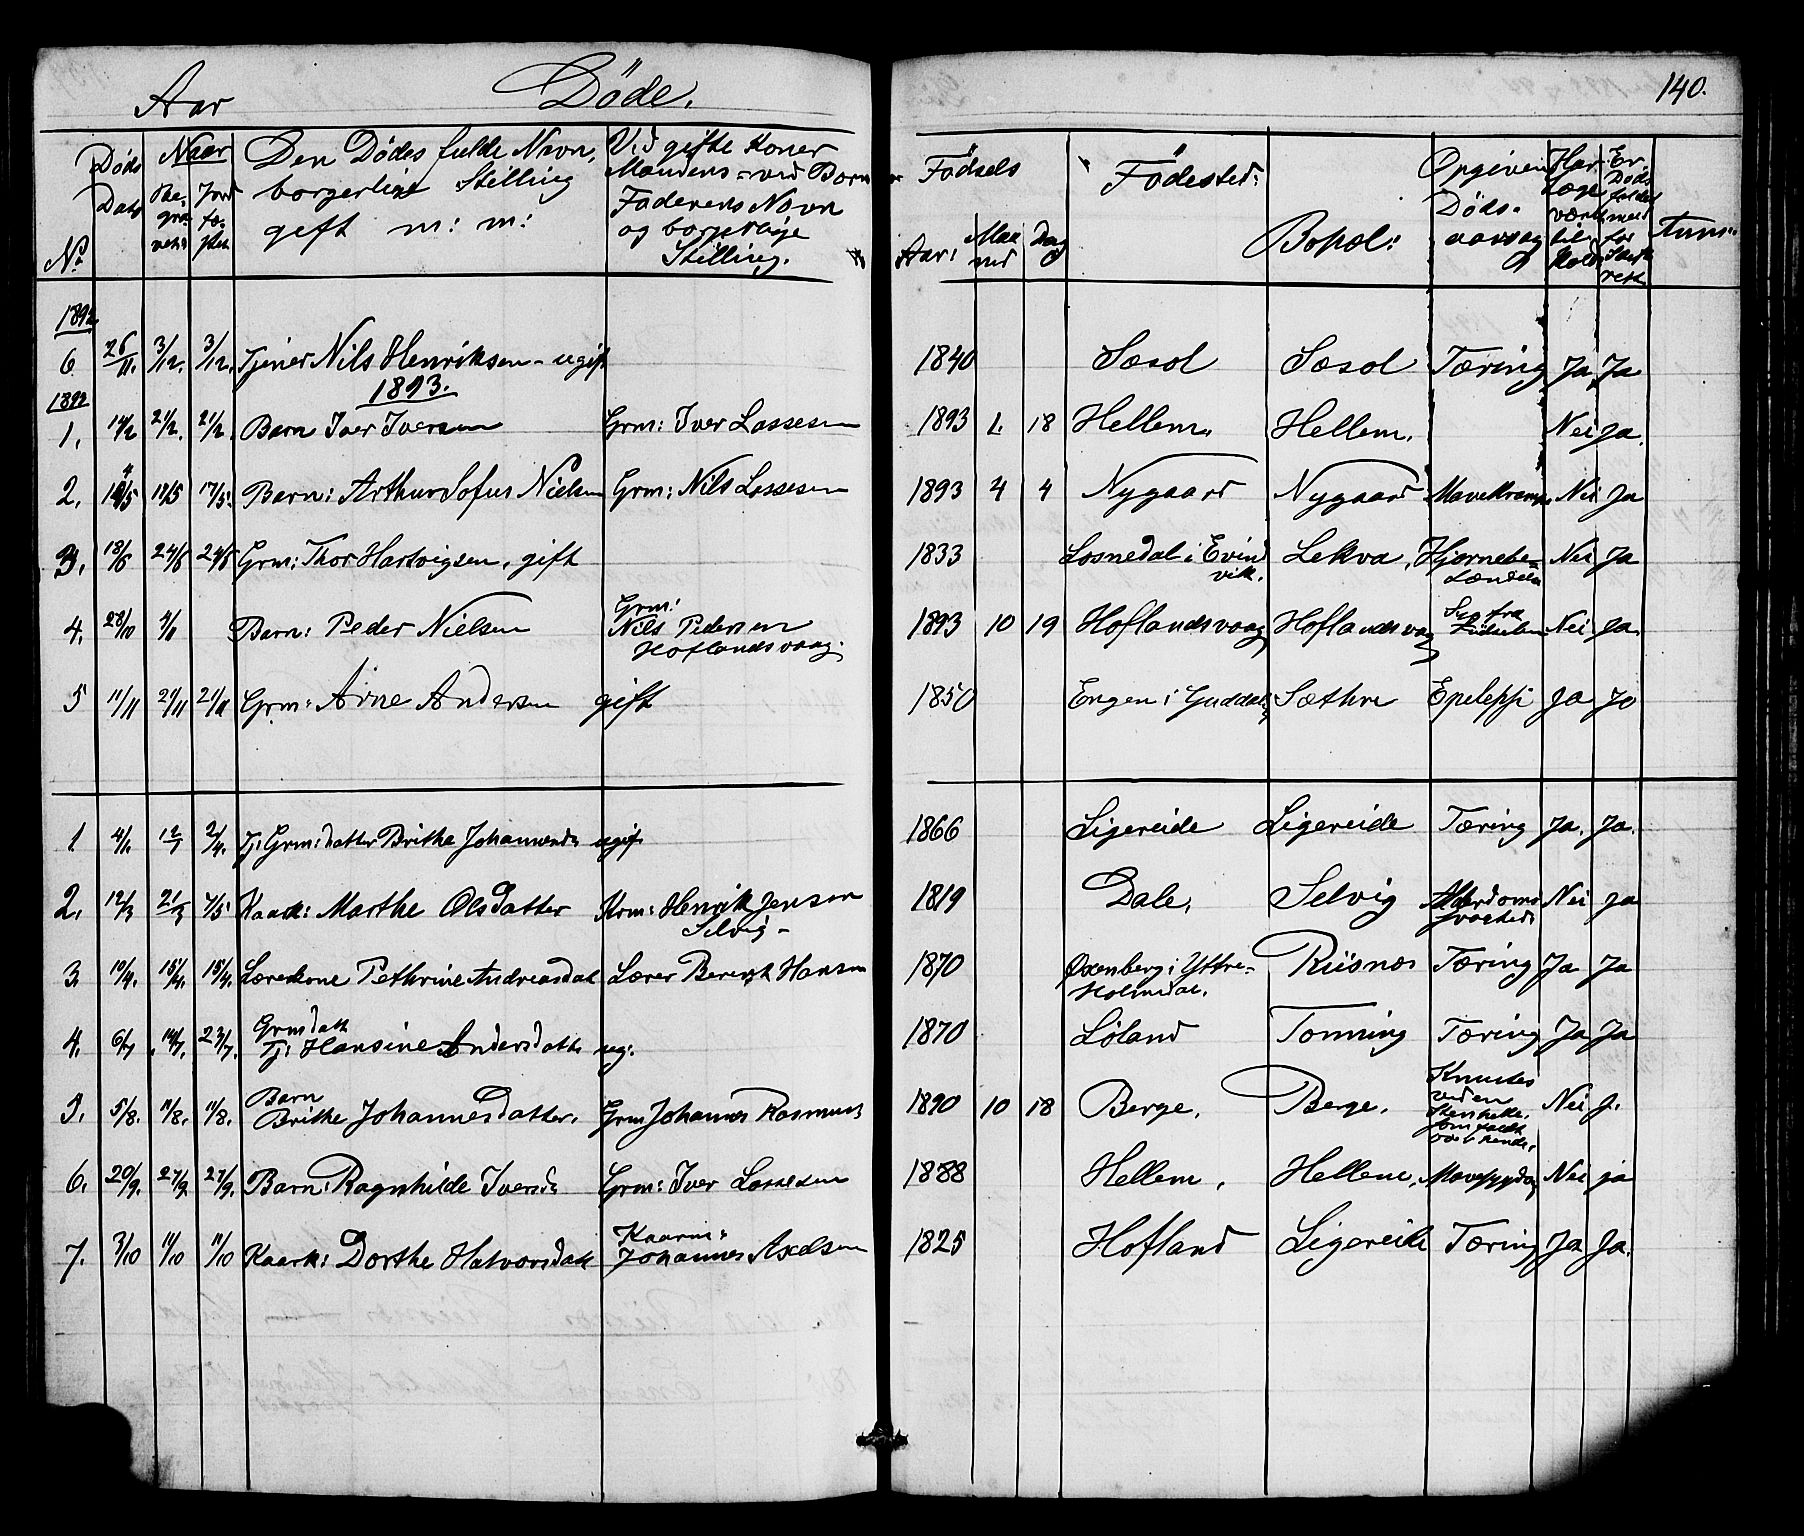 Aar Døde. 140.
No Døds Dato Naar Begravet Jordfæstet Den Dødes fulde Navn, borgerlige Stilling gift m: m: Vid gifte Koner Mandens - ved Børn Faderens Navn og borgerlige Stilling. Fødsels Aar: Maaned Dag Fødested: Bopæl: Opgiven Dødsaarsag Har Læge været tilkaldt Er Dødsfaldet meldt for Skifteret Anm:
1892
6 26/11. 3/12. 3/12. Tjener Nils Henriksen - ugift 1840 Sæsol Sæsol Tæring Ja Ja
1893.
1. 14/2 21/2. 21/2. Barn Iver Iversen Grm: Iver Lassesen 1893 1. 18 Hellem. Hellem. Nei Ja.
2. 17/5 17/5. Barn: Arthur Sofus Nielsen Grm: Nils Lassesen 1893 4 4 Nygaard Nygaard Mavekrampe Nei Ja
3. 18/6 24/6 24/6 Grm: Thor Hartvigsen, gift 1833 Losnedal i Evindvik. Lekva. Hjernebetændelse Nei Ja
4. 28/10 Barn: Peder Nielsen Grm: Nils Pedersen Hoflandsvaag. 1893 10 19 Hoflandsvaag Hoflandsvaag Syg fra Fødselen Nei Ja.
5 11/11 21/11 21/11 Grm: Arne Andersen gift 1850 Engen i Guddal Sæthre Epelepsi Ja Ja
1. 4/1. 12/1 2/4. Tj: Grm:datter Brithe Johannesd. ugift 1866 Ligereide Ligereide Tæring Ja. Ja.
2. 12/3 21/3 7/5 Kaark: Marthe Olsdatter Krm: Henrik Jensen Selvig - 1819 Dale. Selvig Alderdomssvaghed Nei Ja
3. 10/4. 15/4. 15/4. Lærerkone Pethrine Andreasdat Lærer Berent Hansen 1870 Oxenberg i Yttre-Holmedal. Riisnes Tæring Ja Ja
4. 6/7 14/7. 23/7. Grmdatt Tj: Hansine Andersdatt ug. 1870 Løland Tonning Tæring Ja Ja
5. 5/8. 11/8. 11/8. Barn Brithe Johannesdatter. Grm Johannes Rasmuss 1890 10 18 Berge. Berge. Knustes ved en Stenhelle, som faldt over hende. Nei J.
6. 20/9. 27/9 27/9. Barn: Ragnhilde Iversd. Grm: Iver Lassesen 1888 Hellem. Hellem. Mavesygdom Nei ja
7. 3/10 11/10 11/10 Kaark: Dorthe Halvorsdatt Kaarm: Johannes Axelsen 1825 Hofland Ligereide Tæring Ja Ja.